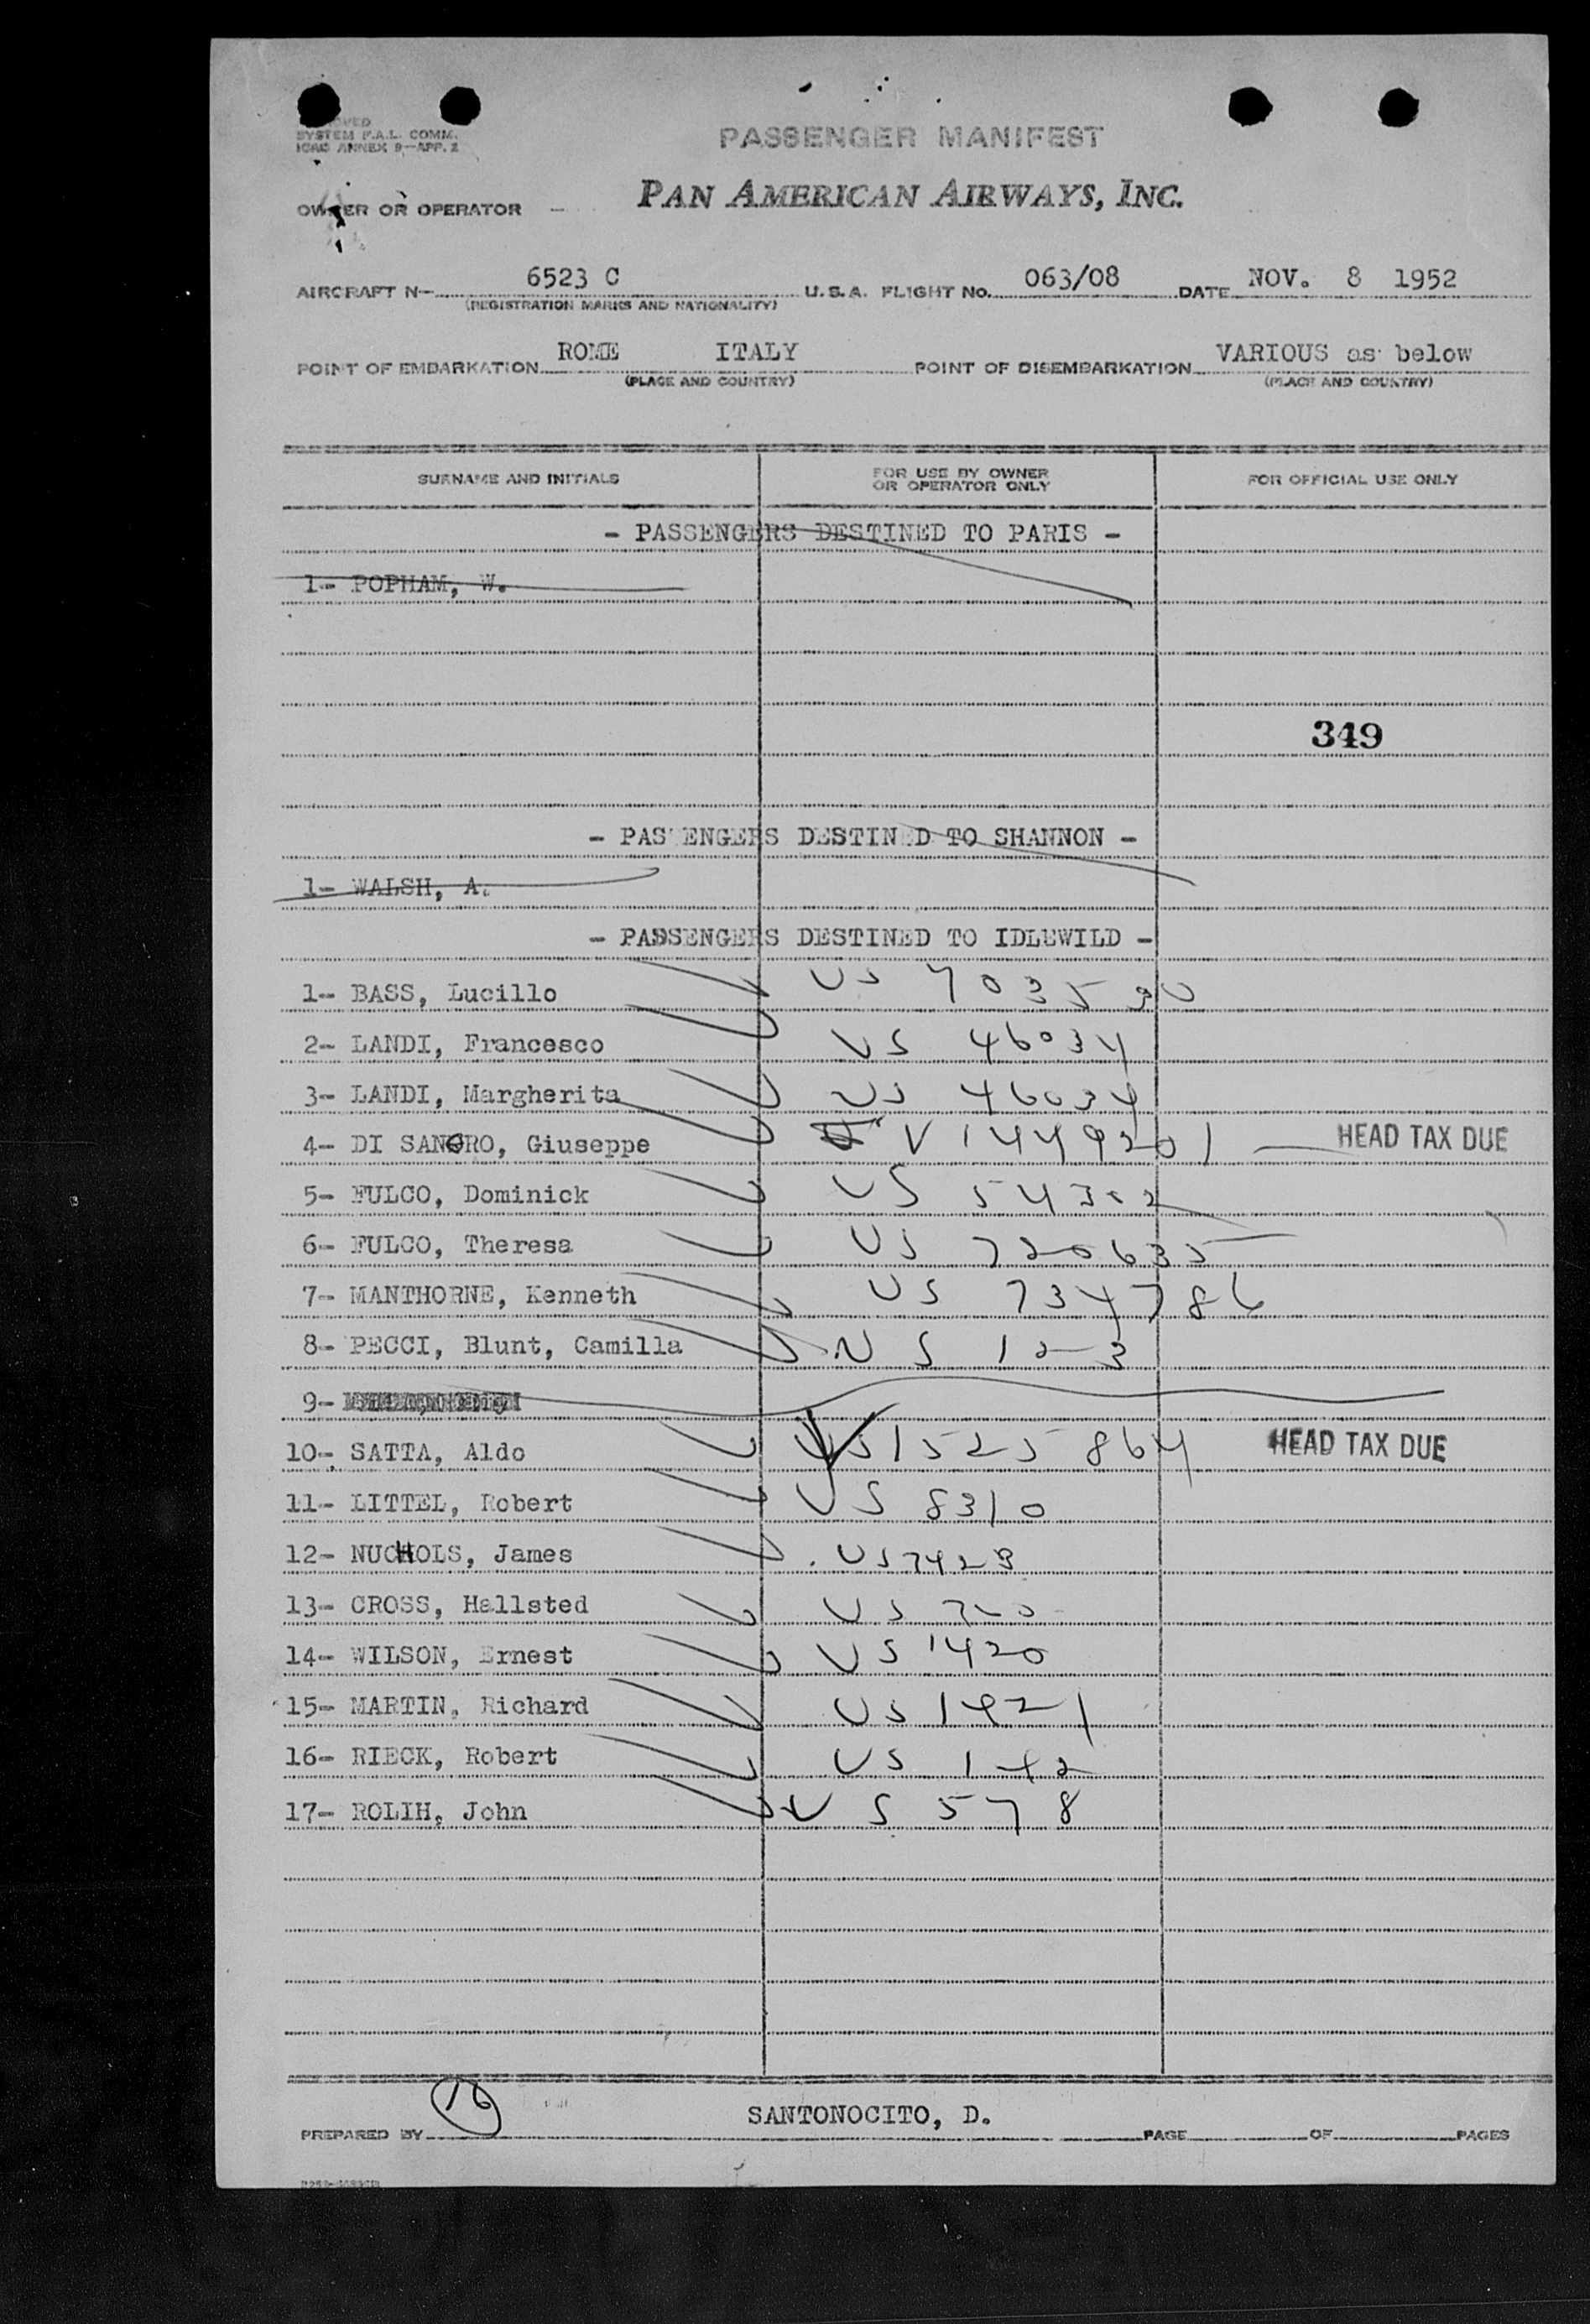 SYSTEM F.A.L. COMM.
ICAO ANNEX 9—APP. 2
PASSENGER MANIFEST
OWNER OR OPERATOR — PAN AMERICAN AIRWAYS, INC.
AIRCRAFT N— 6523 C U.S.A. FLIGHT No. 063/08 DATE NOV. 8 1952
(REGISTRATION MARKS AND NATIONALITY)
POINT OF EMBARKATION ROME ITALY POINT OF DISEMBARKATION VARIOUS as below
(PLACE AND COUNTRY) (PLACE AND COUNTRY)
SURNAME AND INITIALS FOR USE BY OWNER OR OPERATOR ONLY FOR OFFICIAL USE ONLY
- PASSENGERS DESTINED TO PARIS -
1- POPHAM, W.
349
- PASSENGERS DESTINED TO SHANNON -
1- WALSH, A.
- PASSENGERS DESTINED TO IDLEWILD -
1- BASS, Lucillo US
2- LANDI, Francesco US 46034
3- LANDI, Margherita US 46034
4- DI SANGRO, Giuseppe V 1449201 HEAD TAX DUE
5- FULCO, Dominick US 54302
6- FULCO, Theresa US 720635
7- MANTHORNE, Kenneth US 734786
8- PECCI, Blunt, Camilla US 123
9-
10- SATTA, Aldo 1525864 HEAD TAX DUE
11- LITTEL, Robert US 8310
12- NUCHOLS, James US 7423
13- CROSS, Hallsted US
14- WILSON, Ernest US 1420
15- MARTIN, Richard US 1421
16- RIECK, Robert US 142
17- ROLIH, John US 578
16
SANTONOCITO, D.
PREPARED BY PAGE OF PAGES